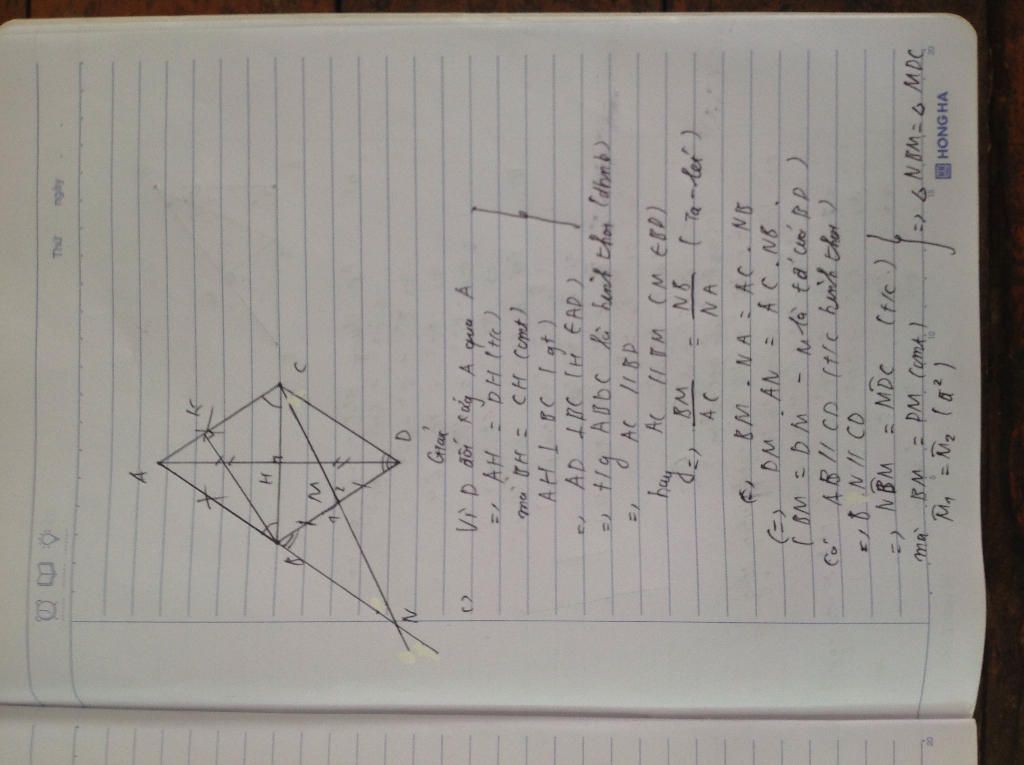 Thứ
ngày
A
K
H
C
B
M
1
2
D
N
Giải
c)
Vì D đối xứng A qua
=> AH = DH (t/c)
mà BH = CH (cmt)
AH ⊥ BC (gt)
=> AD ⊥ BC (H ∈ AD)
=> t/g ABDC là hình thoi (dhnb)
=> AC // BD
hay AC // BM (M ∈ BD)
(=) BM/AC = NB/NA (Ta-let)
(=) BM . NA = AC . NB
(=) DM . AN = AC . NB .
(BM = DM - M là tđ của BD)
Có AB // CD (t/c hình thoi)
=> BN // CD
=> NBM = MDC (t/c)
mà BM = DM (cmt)
M1 = M2 (đ²)
=> Δ NBM = Δ MDC
HONG HA